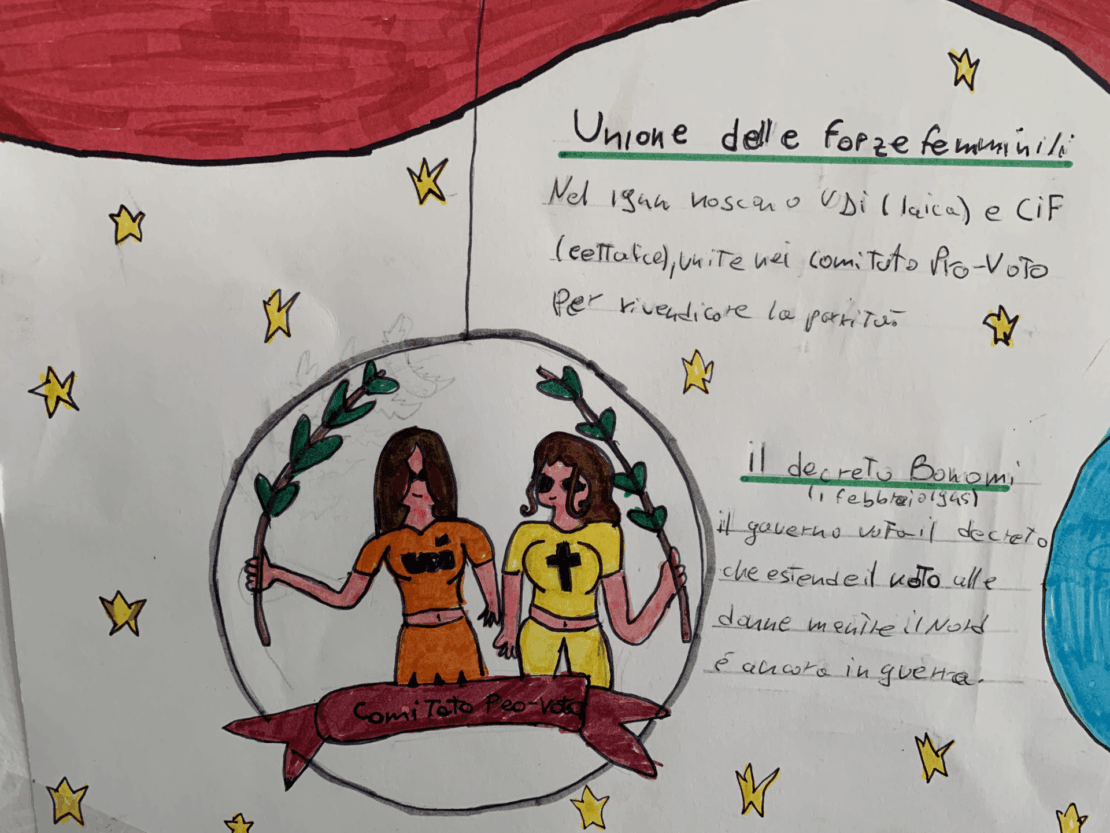 Unione delle forze femminili
Nel 1944 nascono UDi (laica) e CiF
(cattolica), unite nei comitato Pro-Voto
Per rivendicare la parità
il decreto Bonomi
(1 febbraio 1945)
il governo vota il decreto
che estende il voto alle
donne mentre il Nord
é ancora in guerra.
UDI
Comitato Peo-Voto